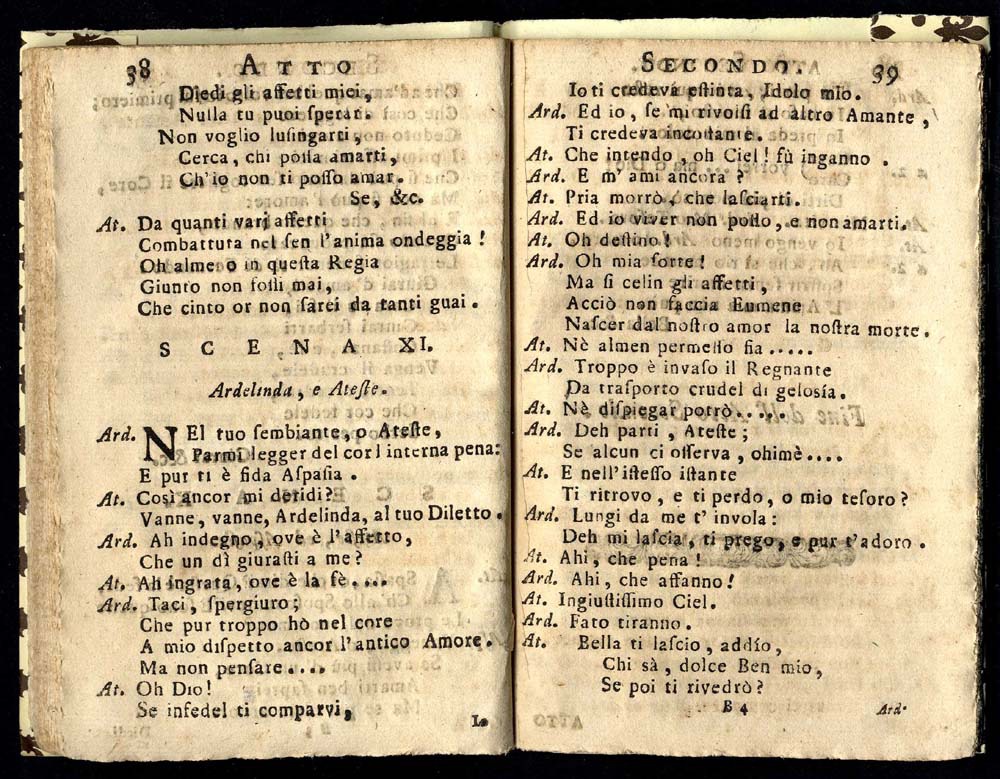 38 ATTO
Diedi gli affetti miei,
Nulla tu puoi sperar.
Non voglio lusingarti,
Cerca, chi possa amarti,
Ch'io non ti posso amar.
Se, &c.
At. Da quanti varj affetti
Combattuta nel sen l'anima ondeggia!
Oh almeno in questa Regia
Giunto non fossi mai,
Che cinto or non sarei da tanti guai.
SCENA XI.
Ardelinda, e Ateste.
Ard. NEl tuo sembiante, o Ateste,
Parmi legger del cor l'interna pena:
E pur ti è fida Aspasia.
At. Così ancor mi deridi?
Vanne, vanne, Ardelinda, al tuo Diletto.
Ard. Ah indegno, ove è l'affetto,
Che un dì giurasti a me?
At. Ah ingrata, ove è la fè....
Ard. Taci, spergiuro;
Che pur troppo hò nel core
A mio dispetto ancor l'antico Amore.
Ma non pensare....
At. Oh Dio!
Se infedel ti comparvi,
Io
SECONDO. 39
Io ti credeva estinta, Idolo mio.
Ard. Ed io, se mi rivolsi ad altro Amante,
Ti credeva incostante.
At. Che intendo, oh Ciel! fù inganno.
Ard. E m'ami ancora?
At. Pria morrò, che lasciarti.
Ard. Ed io viver non posso, e non amarti.
At. Oh destino!
Ard. Oh mia sorte!
Ma si celin gli affetti,
Acciò non faccia Eumene
Nascer dal nostro amor la nostra morte.
At. Nè almen permesso fia.....
Ard. Troppo è invaso il Regnante
Da trasporto crudel di gelosía.
At. Nè dispiegar potrò.....
Ard. Deh parti, Ateste;
Se alcun ci osserva, ohimè....
At. E nell'istesso istante
Ti ritrovo, e ti perdo, o mio tesoro?
Ard. Lungi da me t'invola:
Deh mi lascia, ti prego, e pur t'adoro.
At. Ahi, che pena!
Ard. Ahi, che affanno!
At. Ingiustissimo Ciel.
Ard. Fato tiranno.
At. Bella ti lascio, addío,
Chi sà, dolce Ben mio,
Se poi ti rivedrò?
B 4 Ard.